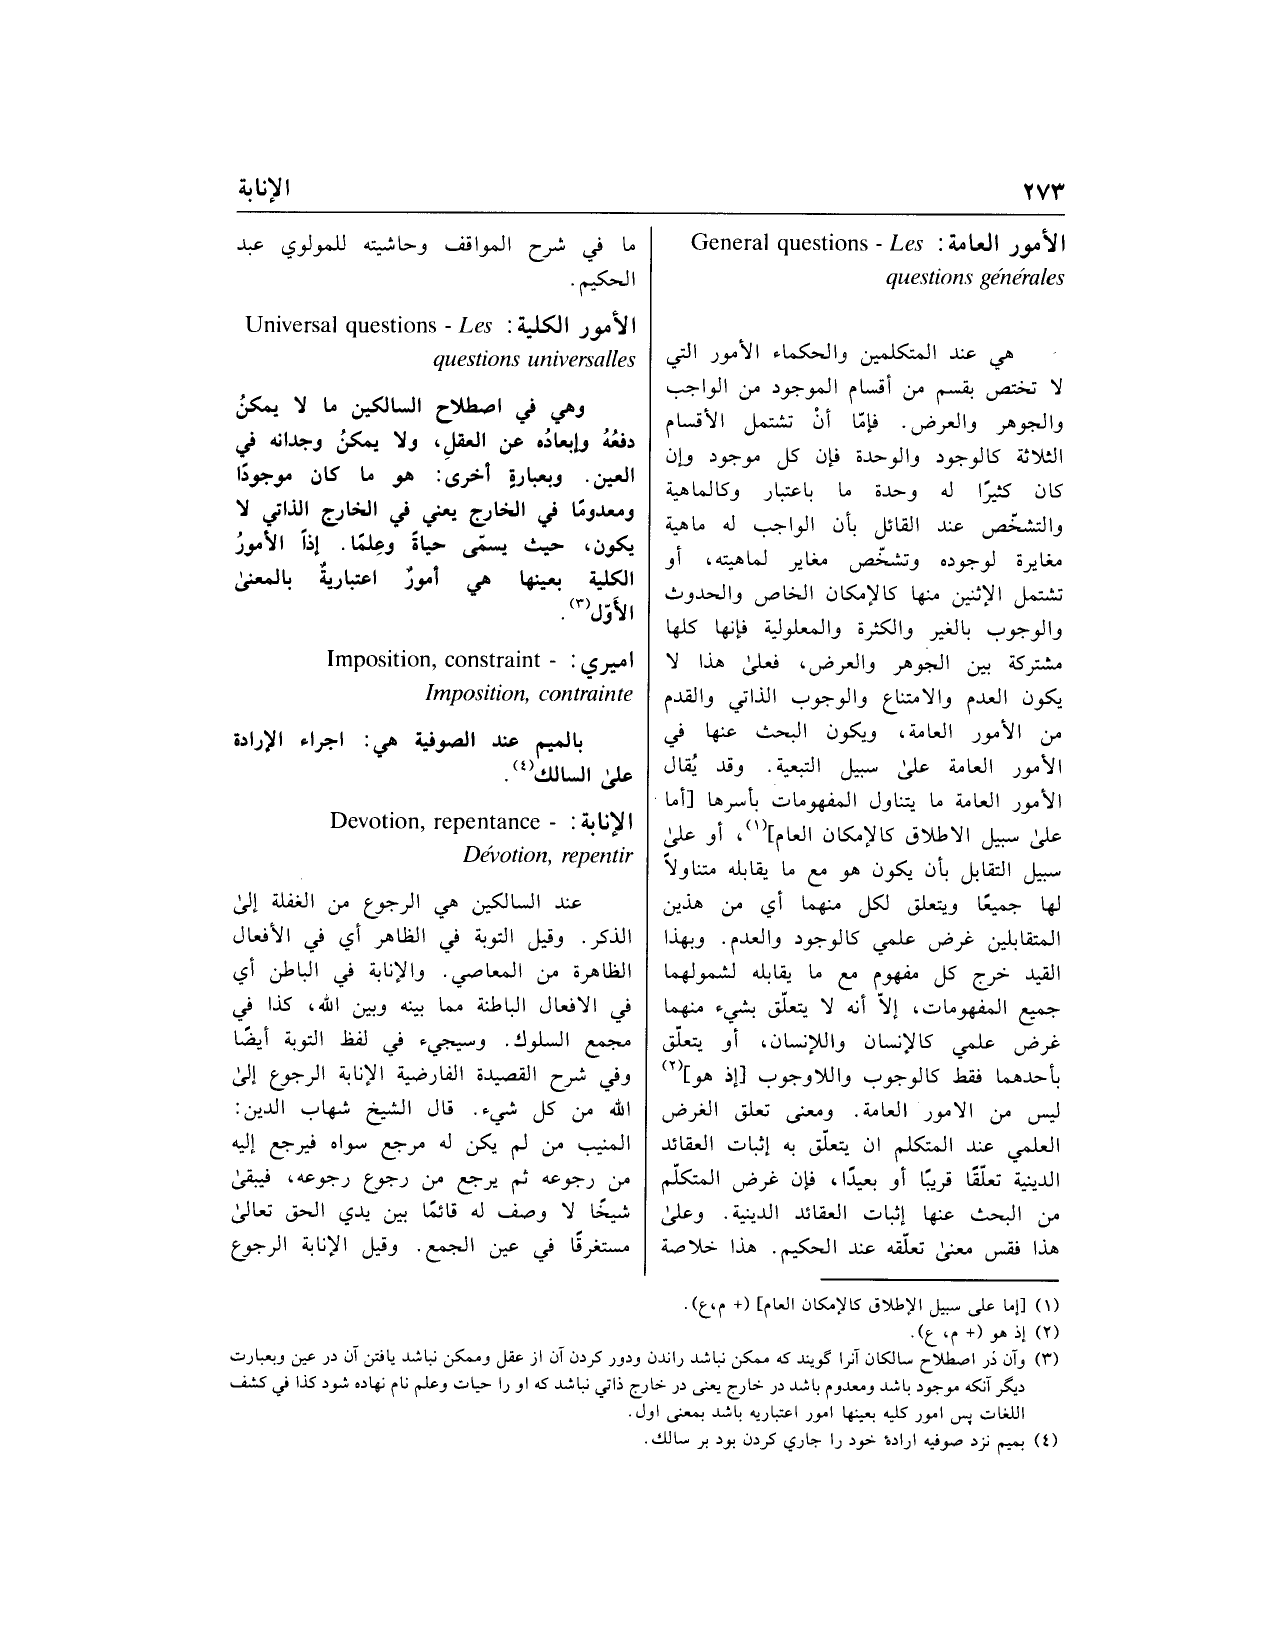 ٢٧٣
الإنابة
الأمور العامة: General questions - Les
questions générales
هي عند المتكلمين والحكماء الأمور التي
لا تختص بقسم من أقسام الموجود من الواجب
والجوهر والعرض. فإمّا أنْ تشتمل الأقسام
الثلاثة كالوجود والوحدة فإن كل موجود وإن
كان كثيرًا له وحدة ما باعتبار وكالماهية
والتشخّص عند القائل بأن الواجب له ماهية
مغايرة لوجوده وتشخّص مغاير لماهيته، أو
تشتمل الإثنين منها كالإمكان الخاص والحدوث
والوجوب بالغير والكثرة والمعلولية فإنها كلها
مشتركة بين الجوهر والعرض، فعلىٰ هذا لا
يكون العدم والامتناع والوجوب الذاتي والقدم
من الأمور العامة، ويكون البحث عنها في
الأمور العامة علىٰ سبيل التبعية. وقد يُقال
الأمور العامة ما يتناول المفهومات بأسرها [أما
علىٰ سبيل الاطلاق كالإمكان العام](١)، أو علىٰ
سبيل التقابل بأن يكون هو مع ما يقابله متناولاً
لها جميعًا ويتعلق لكل منهما أي من هذين
المتقابلين غرض علمي كالوجود والعدم. وبهذا
القيد خرج كل مفهوم مع ما يقابله لشمولهما
جميع المفهومات، إلاّ أنه لا يتعلّق بشيء منهما
غرض علمي كالإنسان واللاإنسان، أو يتعلّق
بأحدهما فقط كالوجوب واللاوجوب [إذ هو](٢)
ليس من الامور العامة. ومعنى تعلق الغرض
العلمي عند المتكلم ان يتعلّق به إثبات العقائد
الدينية تعلّقًا قريبًا أو بعيدًا، فإن غرض المتكلّم
من البحث عنها إثبات العقائد الدينية. وعلىٰ
هذا فقس معنىٰ تعلّقه عند الحكيم. هذا خلاصة
ما في شرح المواقف وحاشيته للمولوي عبد
الحكيم.
الأمور الكلية: Universal questions - Les
questions universalles
وهي في اصطلاح السالكين ما لا يمكنُ
دفعُهُ وإبعادُه عن العقلِ، ولا يمكنُ وجدانه في
العين. وبعبارةٍ أخرى: هو ما كان موجودًا
ومعدومًا في الخارج يعني في الخارج الذاتي لا
يكون، حيث يسمّى حياةً وعِلمًا. إذاً الأمورُ
الكلية بعينها هي أمورٌ اعتباريةٌ بالمعنىٰ
الأوّل(٣).
اميري: - Imposition, constraint
Imposition, contrainte
بالميم عند الصوفية هي: اجراء الإرادة
علىٰ السالك(٤).
الإنابة: - Devotion, repentance
Dévotion, repentir
عند السالكين هي الرجوع من الغفلة إلىٰ
الذكر. وقيل التوبة في الظاهر أي في الأفعال
الظاهرة من المعاصي. والإنابة في الباطن أي
في الافعال الباطنة مما بينه وبين الله، كذا في
مجمع السلوك. وسيجيء في لفظ التوبة أيضًا
وفي شرح القصيدة الفارضية الإنابة الرجوع إلىٰ
الله من كل شيء. قال الشيخ شهاب الدين:
المنيب من لم يكن له مرجع سواه فيرجع إليه
من رجوعه ثم يرجع من رجوع رجوعه، فيبقىٰ
شيخًا لا وصف له قائمًا بين يدي الحق تعالىٰ
مستغرقًا في عين الجمع. وقيل الإنابة الرجوع
(١) [إما على سبيل الإطلاق كالإمكان العام] (+ م،ع).
(٢) إذ هو (+ م، ع).
(٣) وآن در اصطلاح سالكان آنرا گويند كه ممكن نباشد راندن ودور كردن آن از عقل وممكن نباشد يافتن آن در عين وبعبارت
ديگر آنكه موجود باشد ومعدوم باشد در خارج يعنى در خارج ذاتي نباشد كه او را حيات وعلم نام نهاده شود كذا في كشف
اللغات پس امور كليه بعينها امور اعتباريه باشد بمعنى اول.
(٤) بميم نزد صوفيه ارادهٔ خود را جاري كردن بود بر سالك.